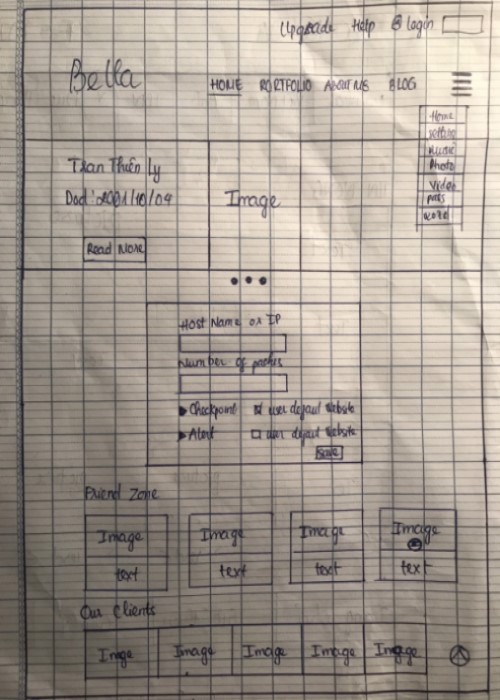 Upgrade Help Login
Bella
HOME PORTFOLIO ABOUT ME BLOG
Home
setting
Music
Photo
Video
Tran Thien Ly
Dod : 2001/10/04
Image
Read More
Host Name or IP
Number of
Checkpoint user defaul website
Alert user defaul website
Save
Friend Zone
Image Image Image Image
text text text text
Our Clients
Image Image Image Image Image